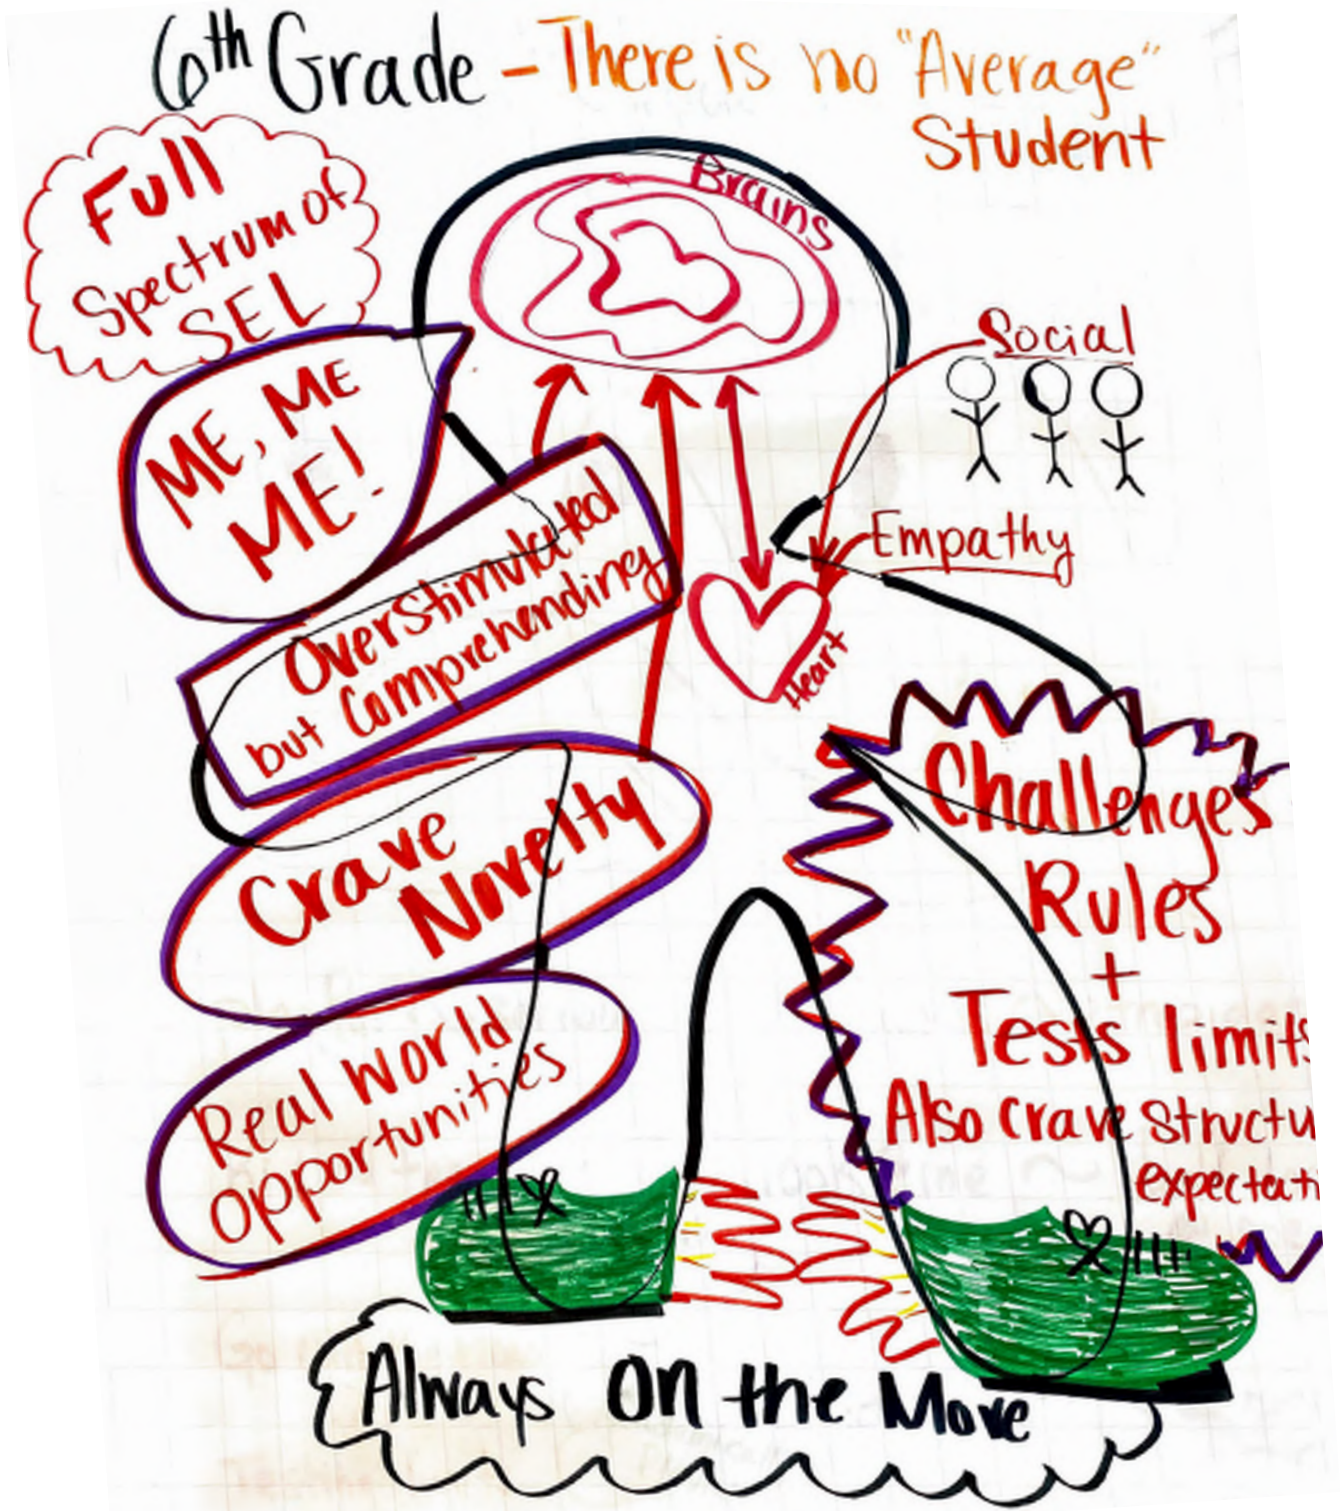 6th Grade - There is no "Average"
Student
Full
Spectrum of
SEL
Brains
ME, ME
ME!
Social
Overstimulated
but Comprehending
Empathy
Heart
Crave
Novelty
Challenges
Rules
+
Tests limits
Also crave structu
expectati
Real World
opportunities
Always on the Move